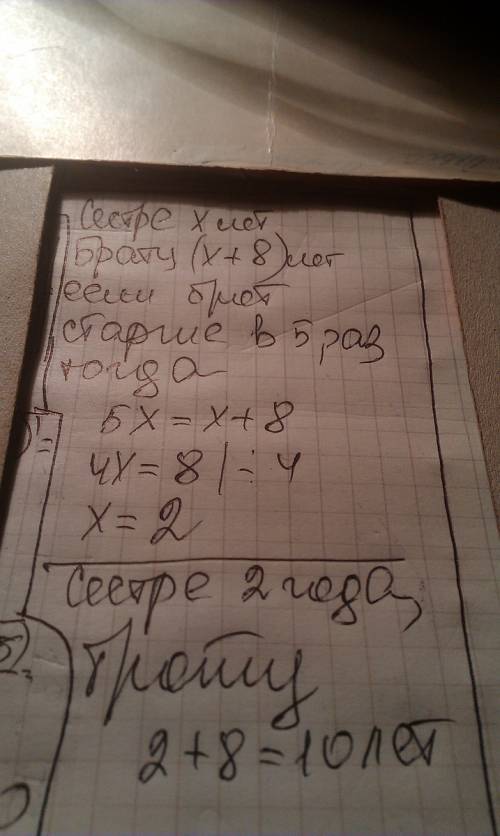 Сестре x лет
Брату (x+8) лет
если брат
старше в 5 раз
тогда
5x = x+8
4x = 8 | ÷ 4
x = 2
Сестре 2 года,
брату
2+8=10 лет